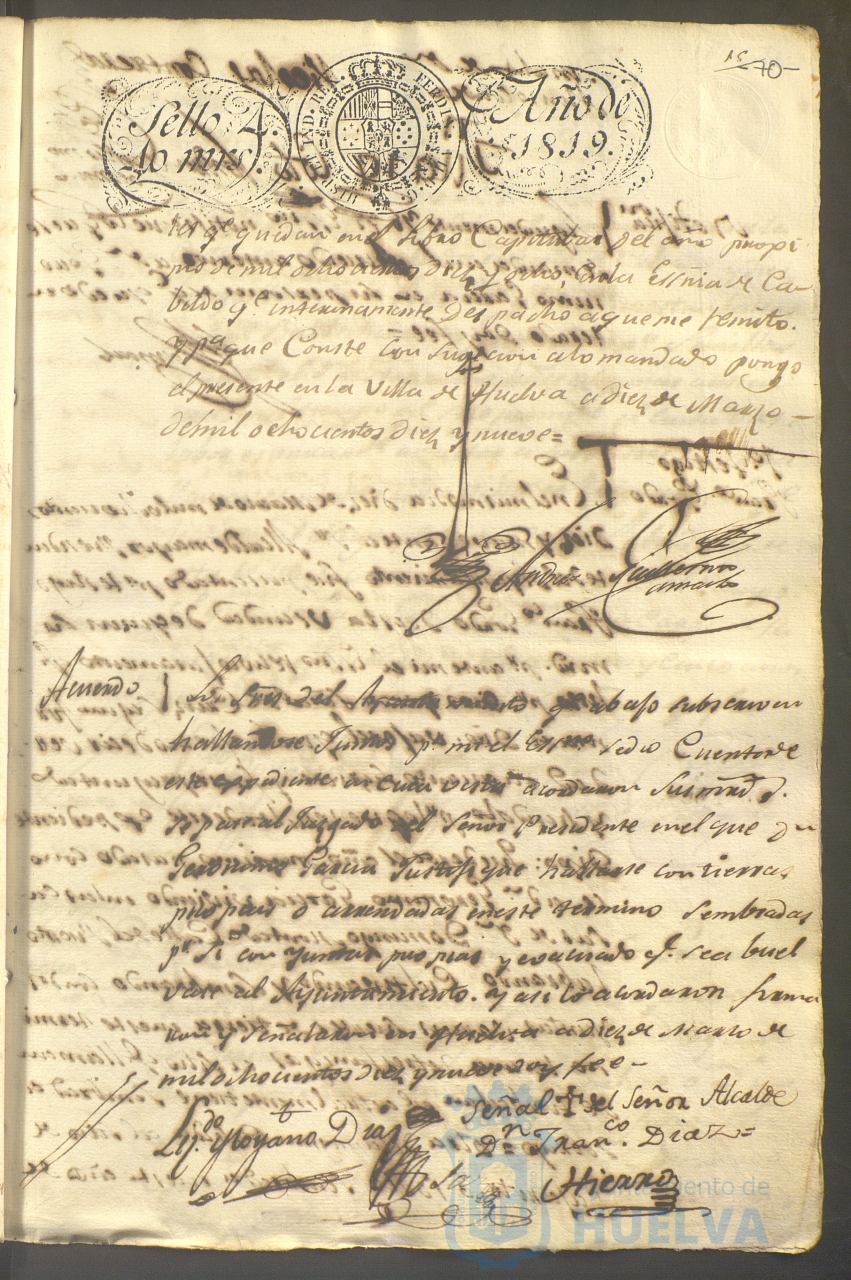 15 70-
Sello 4.
40 mrs.
HISP. ET IND. REX. FERDIN. VII. D. G.
Año de
1819.
tes qe. quedan en el Libro Capitular del año propi
mo de mil ochocientos diez y ocho, en la Essnia de Ca-
bildo qe. interinamente despacho a que me remito.
y pa. que Conste con sugecion a lo mandado pongo
el presente en la Villa de Huelva a diez de Marzo
de mil ochocientos diez y nueve=
Andres Guillermo
Acuerdo
Los Sres. del Ayuntamiento qe. abajo subscriven
hallandose Juntos pr. mi el Essno. se dio Cuenta de
este expediente en cuia vista acordaron Sus mrds.
se pase al Juzgado del Señor Presidente en el que Dn.
Geronimo Garcia Justifique hallarse con tierras
propias o arrendadas en este termino sembradas
pr. si con Yuntas propias y evacuado qe. sea buel
vase al Ayuntamiento. y asi lo acordaron firma
ron y Señalaron en Huelva a diez de Marzo de
mil ochocientos diez y nueve doy fee-
Señal + del Señor Alcalde
Lizdo. Moyano Diaz
Dn. Franco. Diaz=
Hierro
Ayuntamiento de
HUELVA